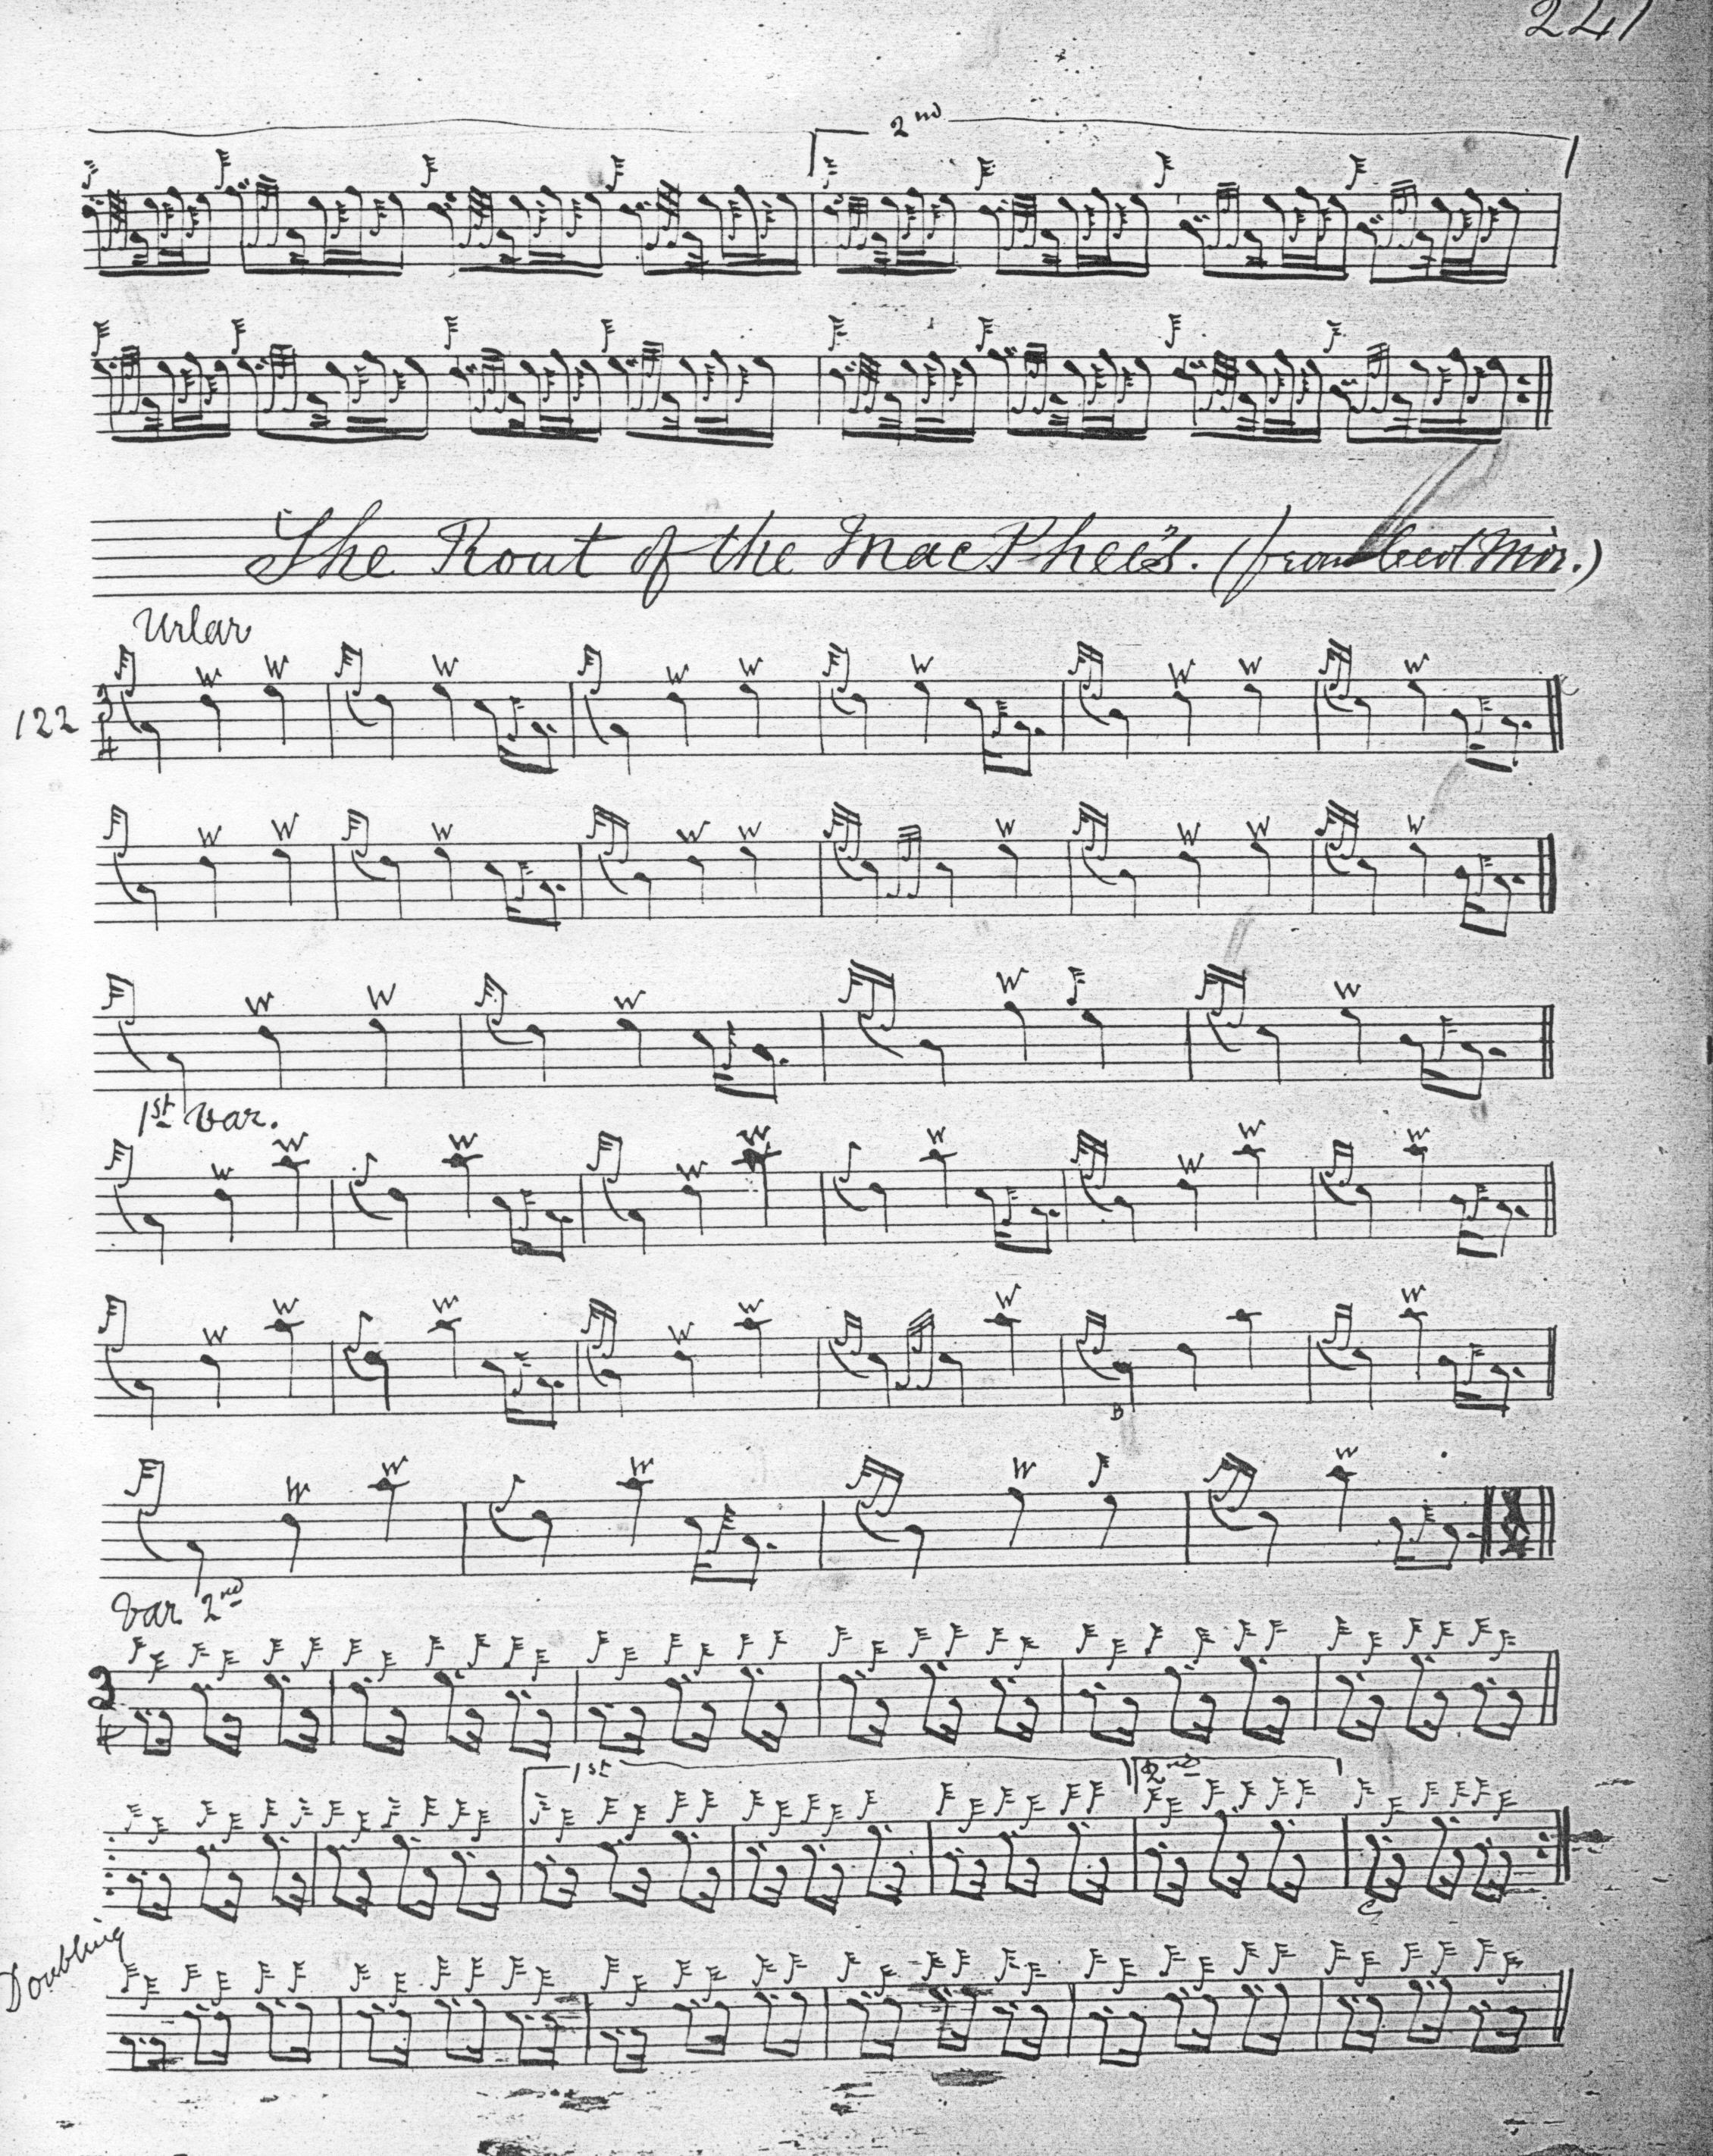 241
2nd
The Rout of the MacPhee's. (from Ceol Mór.)
Urlar
122 3 4
W W W W W W W W W
W W W W W W W W W
W W W W W
1st Var.
W W W W W W W W W
W W W W W W W
W W W W W
Var 2nd
3 4
1st 2nd
Doubling